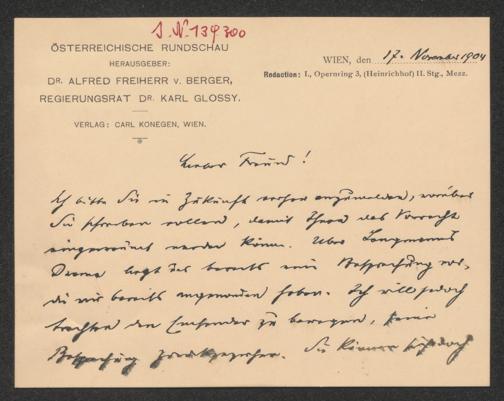 J.N. 139300
ÖSTERREICHISCHE RUNDSCHAU
HERAUSGEBER:
DR. ALFRED FREIHERR V. BERGER,
REGIERUNGSRAT DR. KARL GLOSSY.
VERLAG: CARL KONEGEN, WIEN.
WIEN, den 17. November 1904
Redaction: I., Opernring 3, (Heinrichhof) II. Stg., Mezz.
Lieber Freund!
Ich bitte Sie in Zukunft vorher anzumelden, worüber
Sie schreiben wollen, damit Ihnen das Vorrecht
eingeräumt werden könne. Über Langmanns
Drama liegt bereits eine Besprechung vor,
die wir bereits angenommen haben. Ich will jedoch
trachten den Einsender zu bewegen, seine
Besprechung zurückzuziehen. Sie können